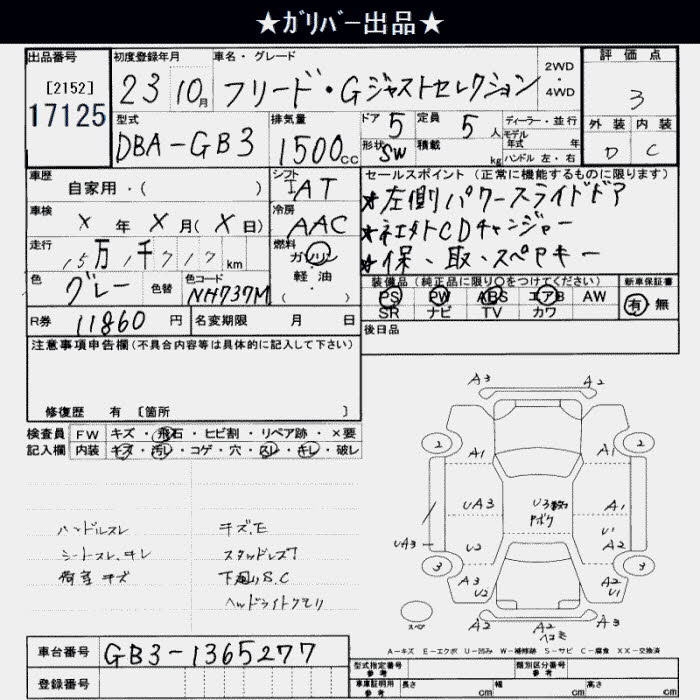 ★ｶﾞﾘﾊﾞｰ出品★
出品番号
[2152]
17125
初度登録年月
23 10月
車名・グレード
フリード・Gジャストセレクション
2WD
・
4WD
評価点
3
外装 内装
D C
型式
DBA-GB3
排気量
1500cc
ドア 5
定員 5人
形状 SW
積載 kg
ディーラー・並行
モデル年式 年
ハンドル 左・右
車歴
自家用・( )
シフト
IAT
車検
X年X月(X日)
冷房
AAC
走行
15万1千717km
燃料
ガソリン
軽・油
・( )
色
グレー
色替
色コード
NH737M
R券 11860円
名変期限 月 日
セールスポイント(正常に機能するものに限ります)
★左側パワースライドドア
★ネエタトCDチャンジャー
★保、取、スペアキー
装備品(純正品に限り○をつけてください)
PS PW ABS エアB AW
SR ナビ TV カワ
新車保証書
有 無
後日品
注意事項申告欄(不具合内容等は具体的に記入して下さい)
修復歴 有 [箇所 ]
検査員
記入欄
FW キズ・飛石・ヒビ割・リペア跡・×要
内装 キズ・汚レ・コゲ・穴・スレ・キレ・破レ
ハンドルスレ
シートスレ.キレ
荷室キズ
キズ.E
スタッドレス7
下廻りS.C
ヘッドライトクモリ
A3 A2
2 2
A1 A1
UA3 U3数ケ A1
ドボク U1
UA3 U2 A2
3 3
A3 A2
U2 U1
スペア
A2 A2 A3
ヘコミ
A-キズ E-エクボ U-凹み W-補修跡 S-サビ C-腐食 XX-交換済
車台番号
GB3-1365277
登録番号
型式指定番号
参考
類別区分番号
参考
車庫証明用
参考
長さ cm 幅 cm 高さ cm